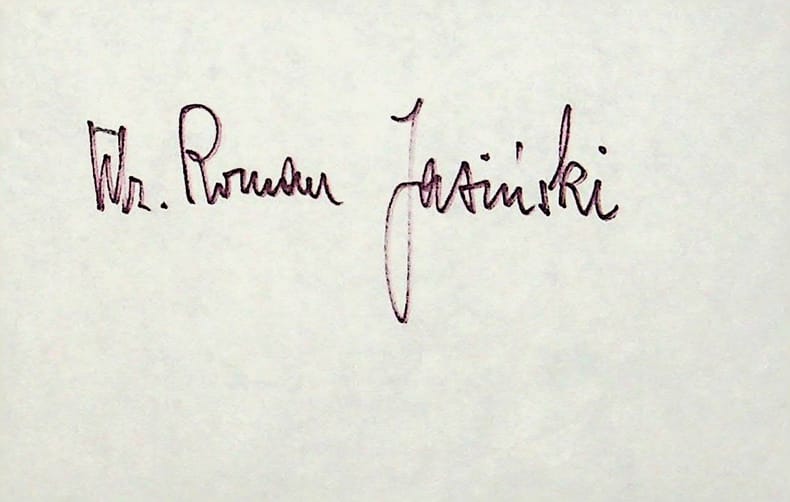 Wł. Roman Jasiński